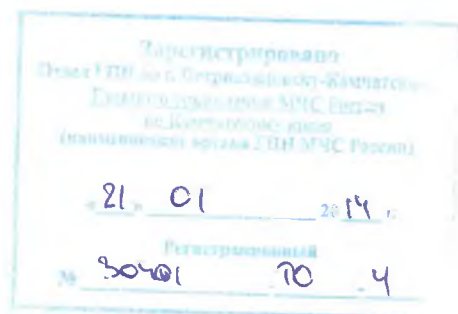 Зарегистрировано
Отдел ГПН по г. Петропавловску-Камчатскому
Главного управления МЧС России
по Камчатскому краю
(наименование органа ГПН МЧС России)
« 21 » 01 2014 г.
Регистрационный
№ ТО 4